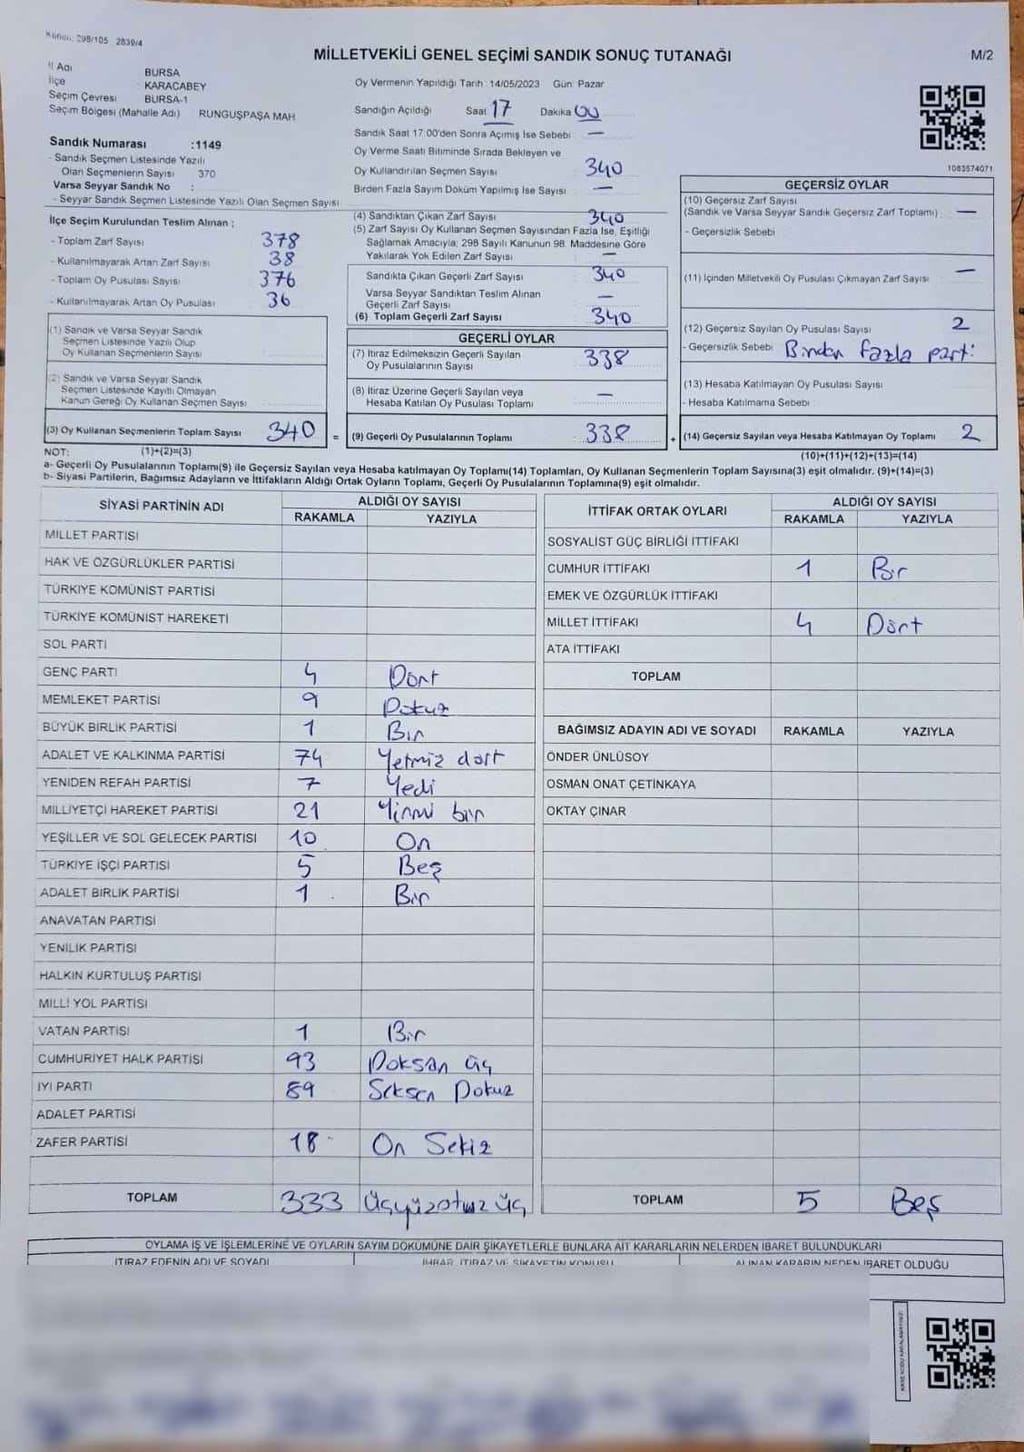 298/105 2839/4
MİLLETVEKİLİ GENEL SEÇİMİ SANDIK SONUÇ TUTANAĞI
M/2
İl Adı BURSA
İlçe KARACABEY
Seçim Çevresi BURSA-1
Seçim Bölgesi (Mahalle Adı) RUNGUŞPAŞA MAH
Oy Vermenin Yapıldığı Tarih : 14/05/2023 Gün: Pazar
Sandığın Açıldığı Saat 17 Dakika 00
Sandık Saat 17:00'den Sonra Açımış İse Sebebi —
Oy Verme Saati Bitiminde Sırada Bekleyen ve
Oy Kullandırılan Seçmen Sayısı 340
Birden Fazla Sayım Döküm Yapılmış İse Sayısı —
1083574071
Sandık Numarası :1149
- Sandık Seçmen Listesinde Yazılı
Olan Seçmenlerin Sayısı 370
Varsa Seyyar Sandık No :
- Seyyar Sandık Seçmen Listesinde Yazılı Olan Seçmen Sayısı
İlçe Seçim Kurulundan Teslim Alınan ;
- Toplam Zarf Sayısı 378
- Kullanılmayarak Artan Zarf Sayısı 38
- Toplam Oy Pusulası Sayısı 376
- Kullanılmayarak Artan Oy Pusulası 36
(1) Sandık ve Varsa Seyyar Sandık
Seçmen Listesinde Yazılı Olup
Oy Kullanan Seçmenlerin Sayısı
(2) Sandık ve Varsa Seyyar Sandık
Seçmen Listesinde Kayıtlı Olmayan
Kanun Gereği Oy Kullanan Seçmen Sayısı
(3) Oy Kullanan Seçmenlerin Toplam Sayısı 340 =
(4) Sandıktan Çıkan Zarf Sayısı 340
(5) Zarf Sayısı Oy Kullanan Seçmen Sayısından Fazla İse, Eşitliği
Sağlamak Amacıyla; 298 Sayılı Kanunun 98. Maddesine Göre
Yakılarak Yok Edilen Zarf Sayısı —
Sandıkta Çıkan Geçerli Zarf Sayısı 340
Varsa Seyyar Sandıktan Teslim Alınan
Geçerli Zarf Sayısı —
(6) Toplam Geçerli Zarf Sayısı 340
GEÇERLİ OYLAR
(7) İtiraz Edilmeksizin Geçerli Sayılan
Oy Pusulalarının Sayısı 338
(8) İtiraz Üzerine Geçerli Sayılan veya
Hesaba Katılan Oy Pusulası Toplamı —
(9) Geçerli Oy Pusulalarının Toplamı 338 +
GEÇERSİZ OYLAR
(10) Geçersiz Zarf Sayısı
(Sandık ve Varsa Seyyar Sandık Geçersiz Zarf Toplamı) —
- Geçersizlik Sebebi
(11) İçinden Milletvekili Oy Pusulası Çıkmayan Zarf Sayısı —
(12) Geçersiz Sayılan Oy Pusulası Sayısı 2
- Geçersizlik Sebebi Birden fazla parti
(13) Hesaba Katılmayan Oy Pusulası Sayısı
- Hesaba Katılmama Sebebi
(14) Geçersiz Sayılan veya Hesaba Katılmayan Oy Toplamı 2
NOT: (1)+(2)=(3)
(10)+(11)+(12)+(13)=(14)
a- Geçerli Oy Pusulalarının Toplamı(9) ile Geçersiz Sayılan veya Hesaba katılmayan Oy Toplamı(14) Toplamları, Oy Kullanan Seçmenlerin Toplam Sayısına(3) eşit olmalıdır. (9)+(14)=(3)
b- Siyasi Partilerin, Bağımsız Adayların ve İttifakların Aldığı Ortak Oyların Toplamı, Geçerli Oy Pusulalarının Toplamına(9) eşit olmalıdır.
SİYASİ PARTİNİN ADI ALDIĞI OY SAYISI
RAKAMLA YAZIYLA
MİLLET PARTİSİ
HAK VE ÖZGÜRLÜKLER PARTİSİ
TÜRKİYE KOMÜNİST PARTİSİ
TÜRKİYE KOMÜNİST HAREKETİ
SOL PARTİ
GENÇ PARTİ 4 Dört
MEMLEKET PARTİSİ 9 Dokuz
BÜYÜK BİRLİK PARTİSİ 1 Bir
ADALET VE KALKINMA PARTİSİ 74 Yetmiz dört
YENİDEN REFAH PARTİSİ 7 Yedi
MİLLİYETÇİ HAREKET PARTİSİ 21 Yirmi bir
YEŞİLLER VE SOL GELECEK PARTİSİ 10 On
TÜRKİYE İŞÇİ PARTİSİ 5 Beş
ADALET BİRLİK PARTİSİ 1 Bir
ANAVATAN PARTİSİ
YENİLİK PARTİSİ
HALKIN KURTULUŞ PARTİSİ
MİLLİ YOL PARTİSİ
VATAN PARTİSİ 1 Bir
CUMHURİYET HALK PARTİSİ 93 Doksan üç
İYİ PARTİ 89 Seksen Dokuz
ADALET PARTİSİ
ZAFER PARTİSİ 18 On Sekiz
TOPLAM 333 Üçyüzotuz üç
İTTİFAK ORTAK OYLARI ALDIĞI OY SAYISI
RAKAMLA YAZIYLA
SOSYALİST GÜÇ BİRLİĞİ İTTİFAKI
CUMHUR İTTİFAKI 1 Bir
EMEK VE ÖZGÜRLÜK İTTİFAKI
MİLLET İTTİFAKI 4 Dört
ATA İTTİFAKI
TOPLAM
BAĞIMSIZ ADAYIN ADI VE SOYADI RAKAMLA YAZIYLA
ÖNDER ÜNLÜSOY
OSMAN ONAT ÇETİNKAYA
OKTAY ÇINAR
TOPLAM 5 Beş
OYLAMA İŞ VE İŞLEMLERİNE VE OYLARIN SAYIM DÖKÜMÜNE DAİR ŞİKAYETLERLE BUNLARA AİT KARARLARIN NELERDEN İBARET BULUNDUKLARI
İTİRAZ EDENİN ADI VE SOYADI İHBAR, İTİRAZ VE ŞİKAYETİN KONUSU ALINAN KARARIN NEDEN İBARET OLDUĞU